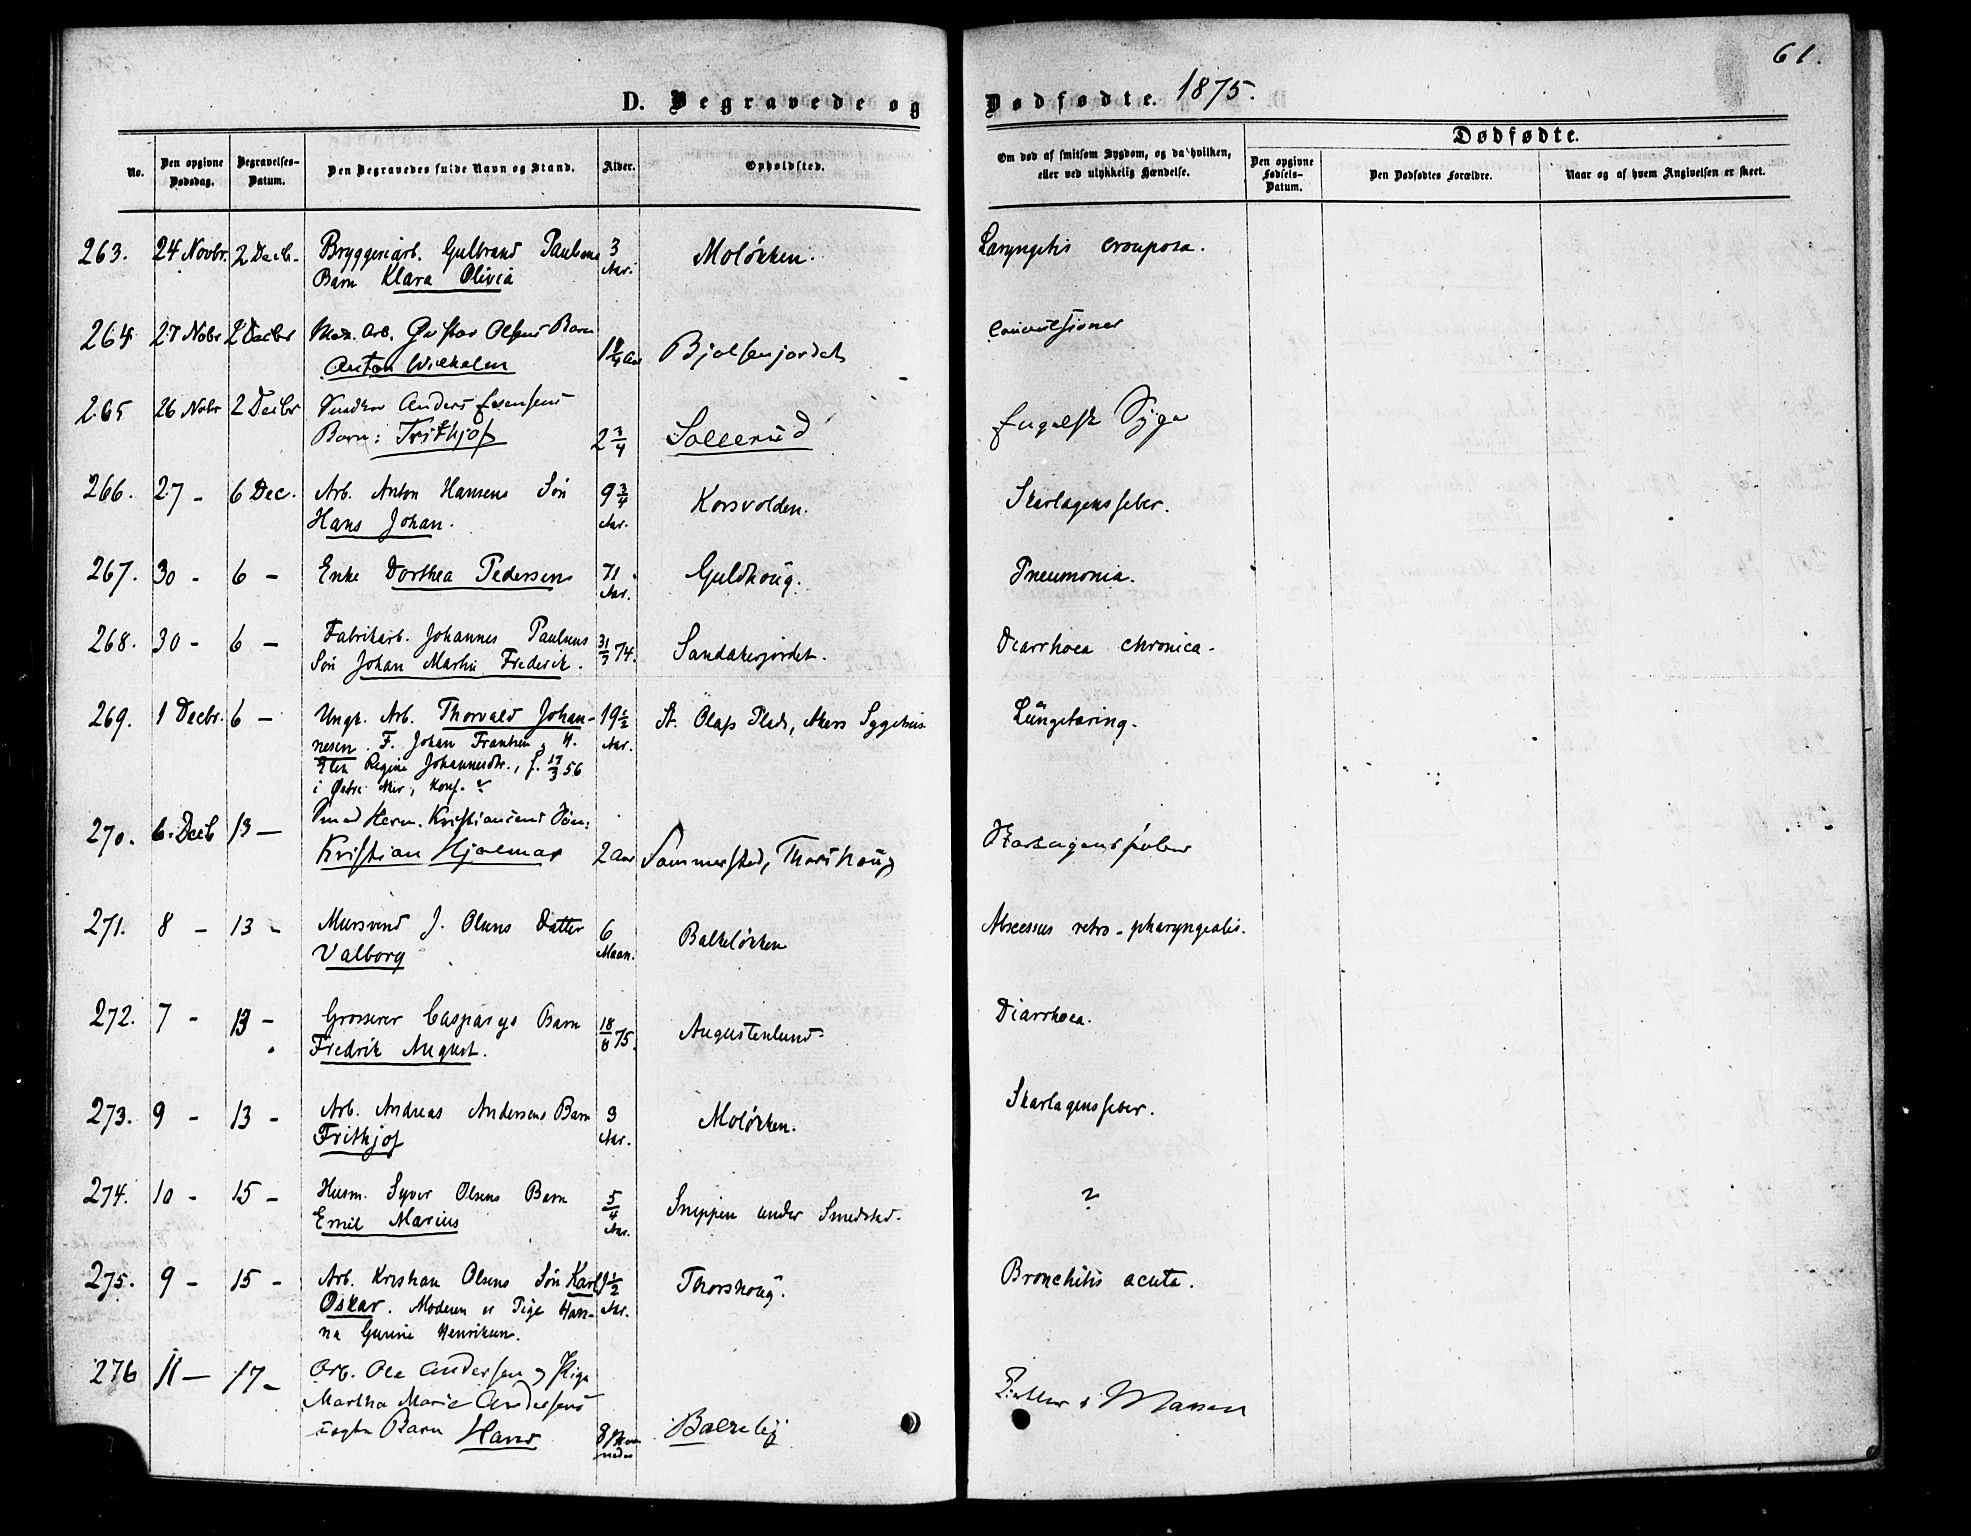 61.
D. Begravede og Dødfødte. 1875.
No.
Den opgivne Dødsdag.
Begravelses-Datum.
Den Begravedes fulde Navn og Stand.
Alder.
Opholdsted.
Om død af smitsom Sygdom, og da hvilken, eller ved ulykkelig Hændelse.
Dødfødte.
Den opgivne Fødsels-Datum.
Den Dødfødtes Forældre.
Naar og af hvem Angivelsen er skeet.
263. 24 Novbr. 2 Decb. Bryggeriarb. Gulbrand Paulsens 3 Aar. Moløkken. Laryngitis crouposa.
Barn Klara Olivia
264 27 Nobr 2 Decbr Arb. Gustav Olsens Barn 1 1/4 Aar Bjølsenjordet Convulsioner
Anton Wilhelm
265 26 Nobr 2 Decbr Anders Evensens Engelsk Syge
Barn: Frithjof 2 3/4 Sollerud
266. 27 - 6 Dec. Arb. Anton Hansens Søn 9 3/4 Aar. Korsvolden. Skarlagensfeber.
Hans Johan.
267. 30 - 6 - Enke Dorthea Pedersen 71 Aar. Guldhoug. Pneumonia.
268. 30 - 6 - Fabrikarb. Johannes Paulsens 31/7 74. Sandakerjordet. Diarrhoea chronica.
Søn Johan Martin Frederik.
269. 1 Decbr. 6 - Ungk. Arb. Thorvald Johan- 19 1/2 Aar. St. Olafs Plads, Akers Sygehus Lungetæring.
nesen. F. Johan Frantsen og
Regine Johannesdtr., f. 17/3 56
i Østre Aker, konf.
270. 6. Decb 13 - Smed Herm. Kristiansens Søn: Skarlagensfeber
Kristian Hjalmar 2 Aar Sommersted, Thorshoug
271. 8 - 13 - Mursvend J. Olsens Datter 6 Maan. Balkeløkken Abscessus retro-pharyngealis.
Valborg
272. 7 - 13 - Grosserer Casparys Barn 18/8 75. Augustenlund. Diarrhoea.
Fredrik August.
273. 9 - 13 - Arb. Andreas Andersens Barn 3 Aar. Moløkken. Skarlagensfeber.
Frithjof
274. 10 - 15 - Husm. Syver Olsens Barn 5/4 Aar. Snippen under Smedstad. ?
Emil Marius
275. 9 - 15 - Arb. Kristian Olsens Søn Karl 1/2 Aar. Thorshoug. Bronchitis acuta.
Oskar. Moderen er Pige Han-
na Gurine Henriksen.
276 11 - 17 - Arb. Ole Andersen og Pige
Martha Marie Andersens
uægte Barn Hans 8 Maaneder Balkeløj